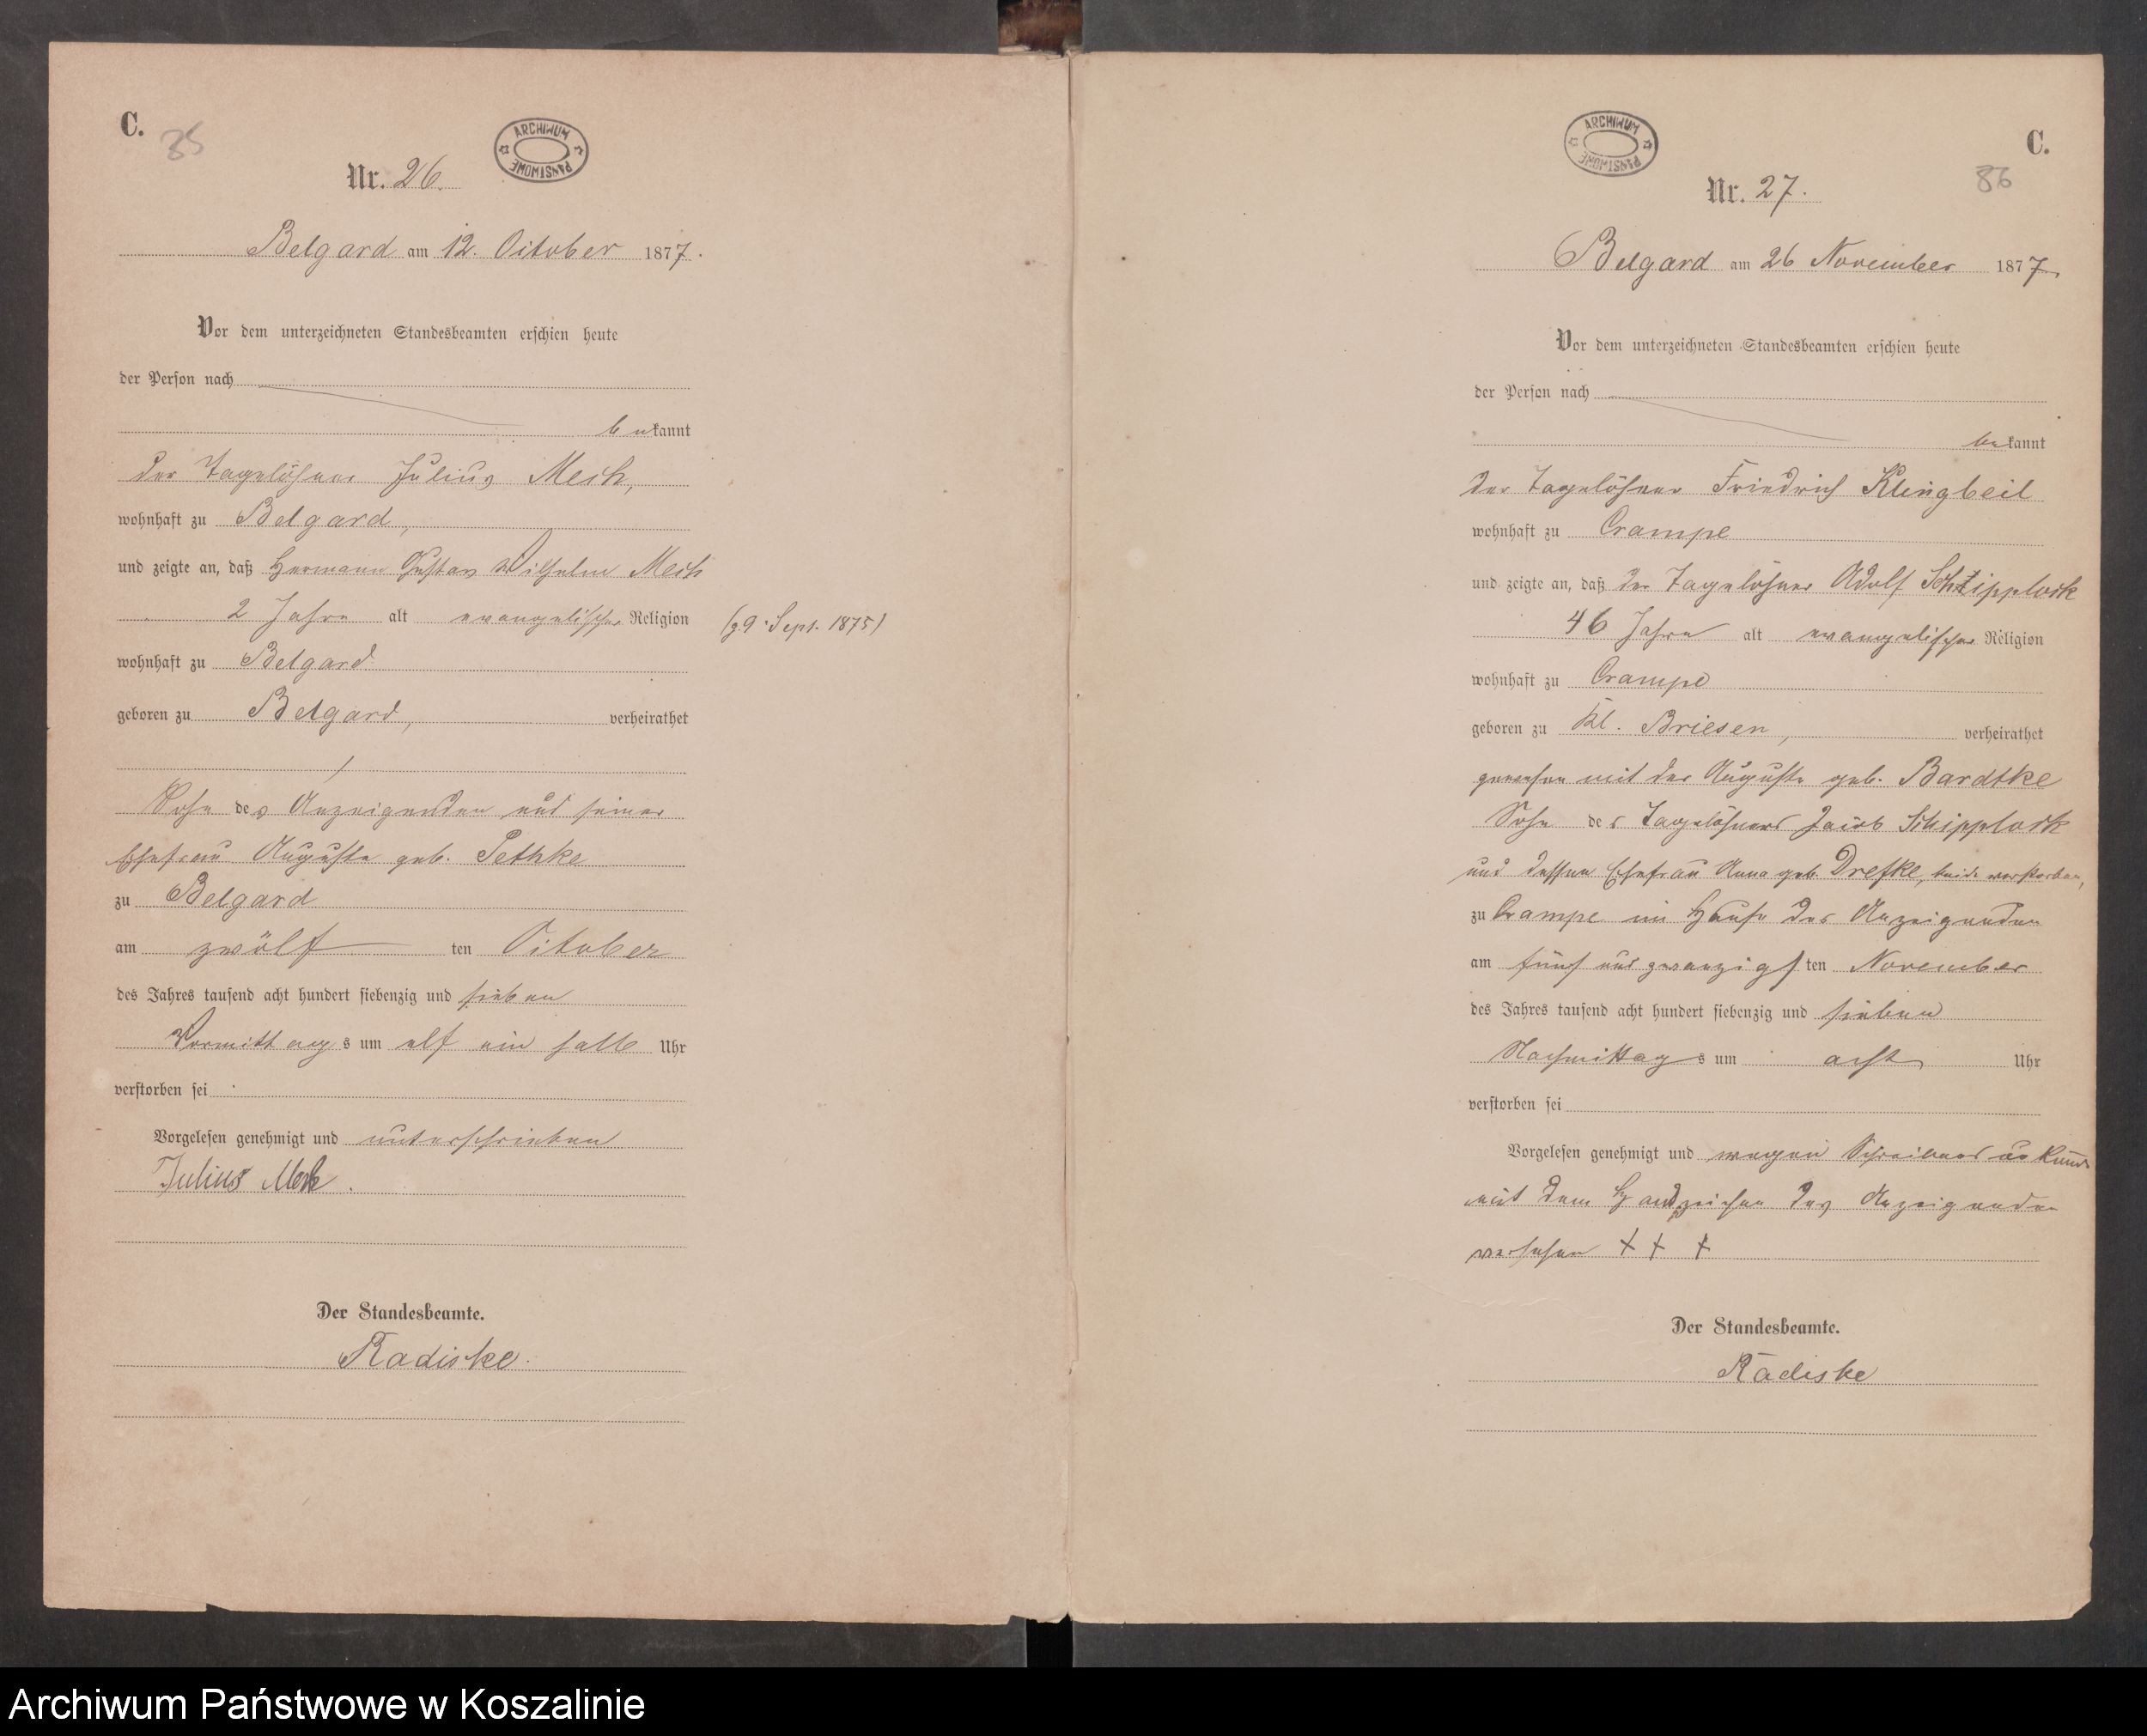 C.
35
ARCHIWUM PAŃSTWOWE
Nr. 26.
Belgard am 12. October 1877.
Vor dem unterzeichneten Standesbeamten erschien heute
der Person nach
bekannt
der Tagelöhner Julius Mech,
wohnhaft zu Belgard,
und zeigte an, daß Hermann Gustav Wilhelm Mech
2 Jahre alt evangelischer Religion (g. 9. Sept. 1875)
wohnhaft zu Belgard
geboren zu Belgard, verheirathet
Sohn des Anzeigenden und seiner
Ehefrau Auguste geb. Pethke
zu Belgard
am zwölf ten October
des Jahres tausend acht hundert siebenzig und sieben
Vormittags um elf ein halb Uhr
verstorben sei
Vorgelesen genehmigt und unterschrieben
Julius Mech.
Der Standesbeamte.
Radiske.
ARCHIWUM PAŃSTWOWE
C.
36
Nr. 27.
Belgard am 26 November 1877,
Vor dem unterzeichneten Standesbeamten erschien heute
der Person nach
bekannt
der Tagelöhner Friedrich Klingbeil
wohnhaft zu Crampe
und zeigte an, daß der Tagelöhner Adolf Schipplock
46 Jahre alt evangelischer Religion
wohnhaft zu Crampe
geboren zu Kl. Briesen, verheirathet
gewesen mit der Auguste geb. Bardtke
Sohn des Tagelöhners Jacob Schipplock
und dessen Ehefrau Anna geb. Drefke, beide verstorben,
zu Crampe im Hause des Anzeigenden
am fünf und zwanzigsten November
des Jahres tausend acht hundert siebenzig und sieben
Nachmittags um acht Uhr
verstorben sei
Vorgelesen genehmigt und wegen Schreibensunkunde
mit dem Handzeichen des Anzeigenden
versehen + + +
Der Standesbeamte.
Radiske
Archiwum Państwowe w Koszalinie